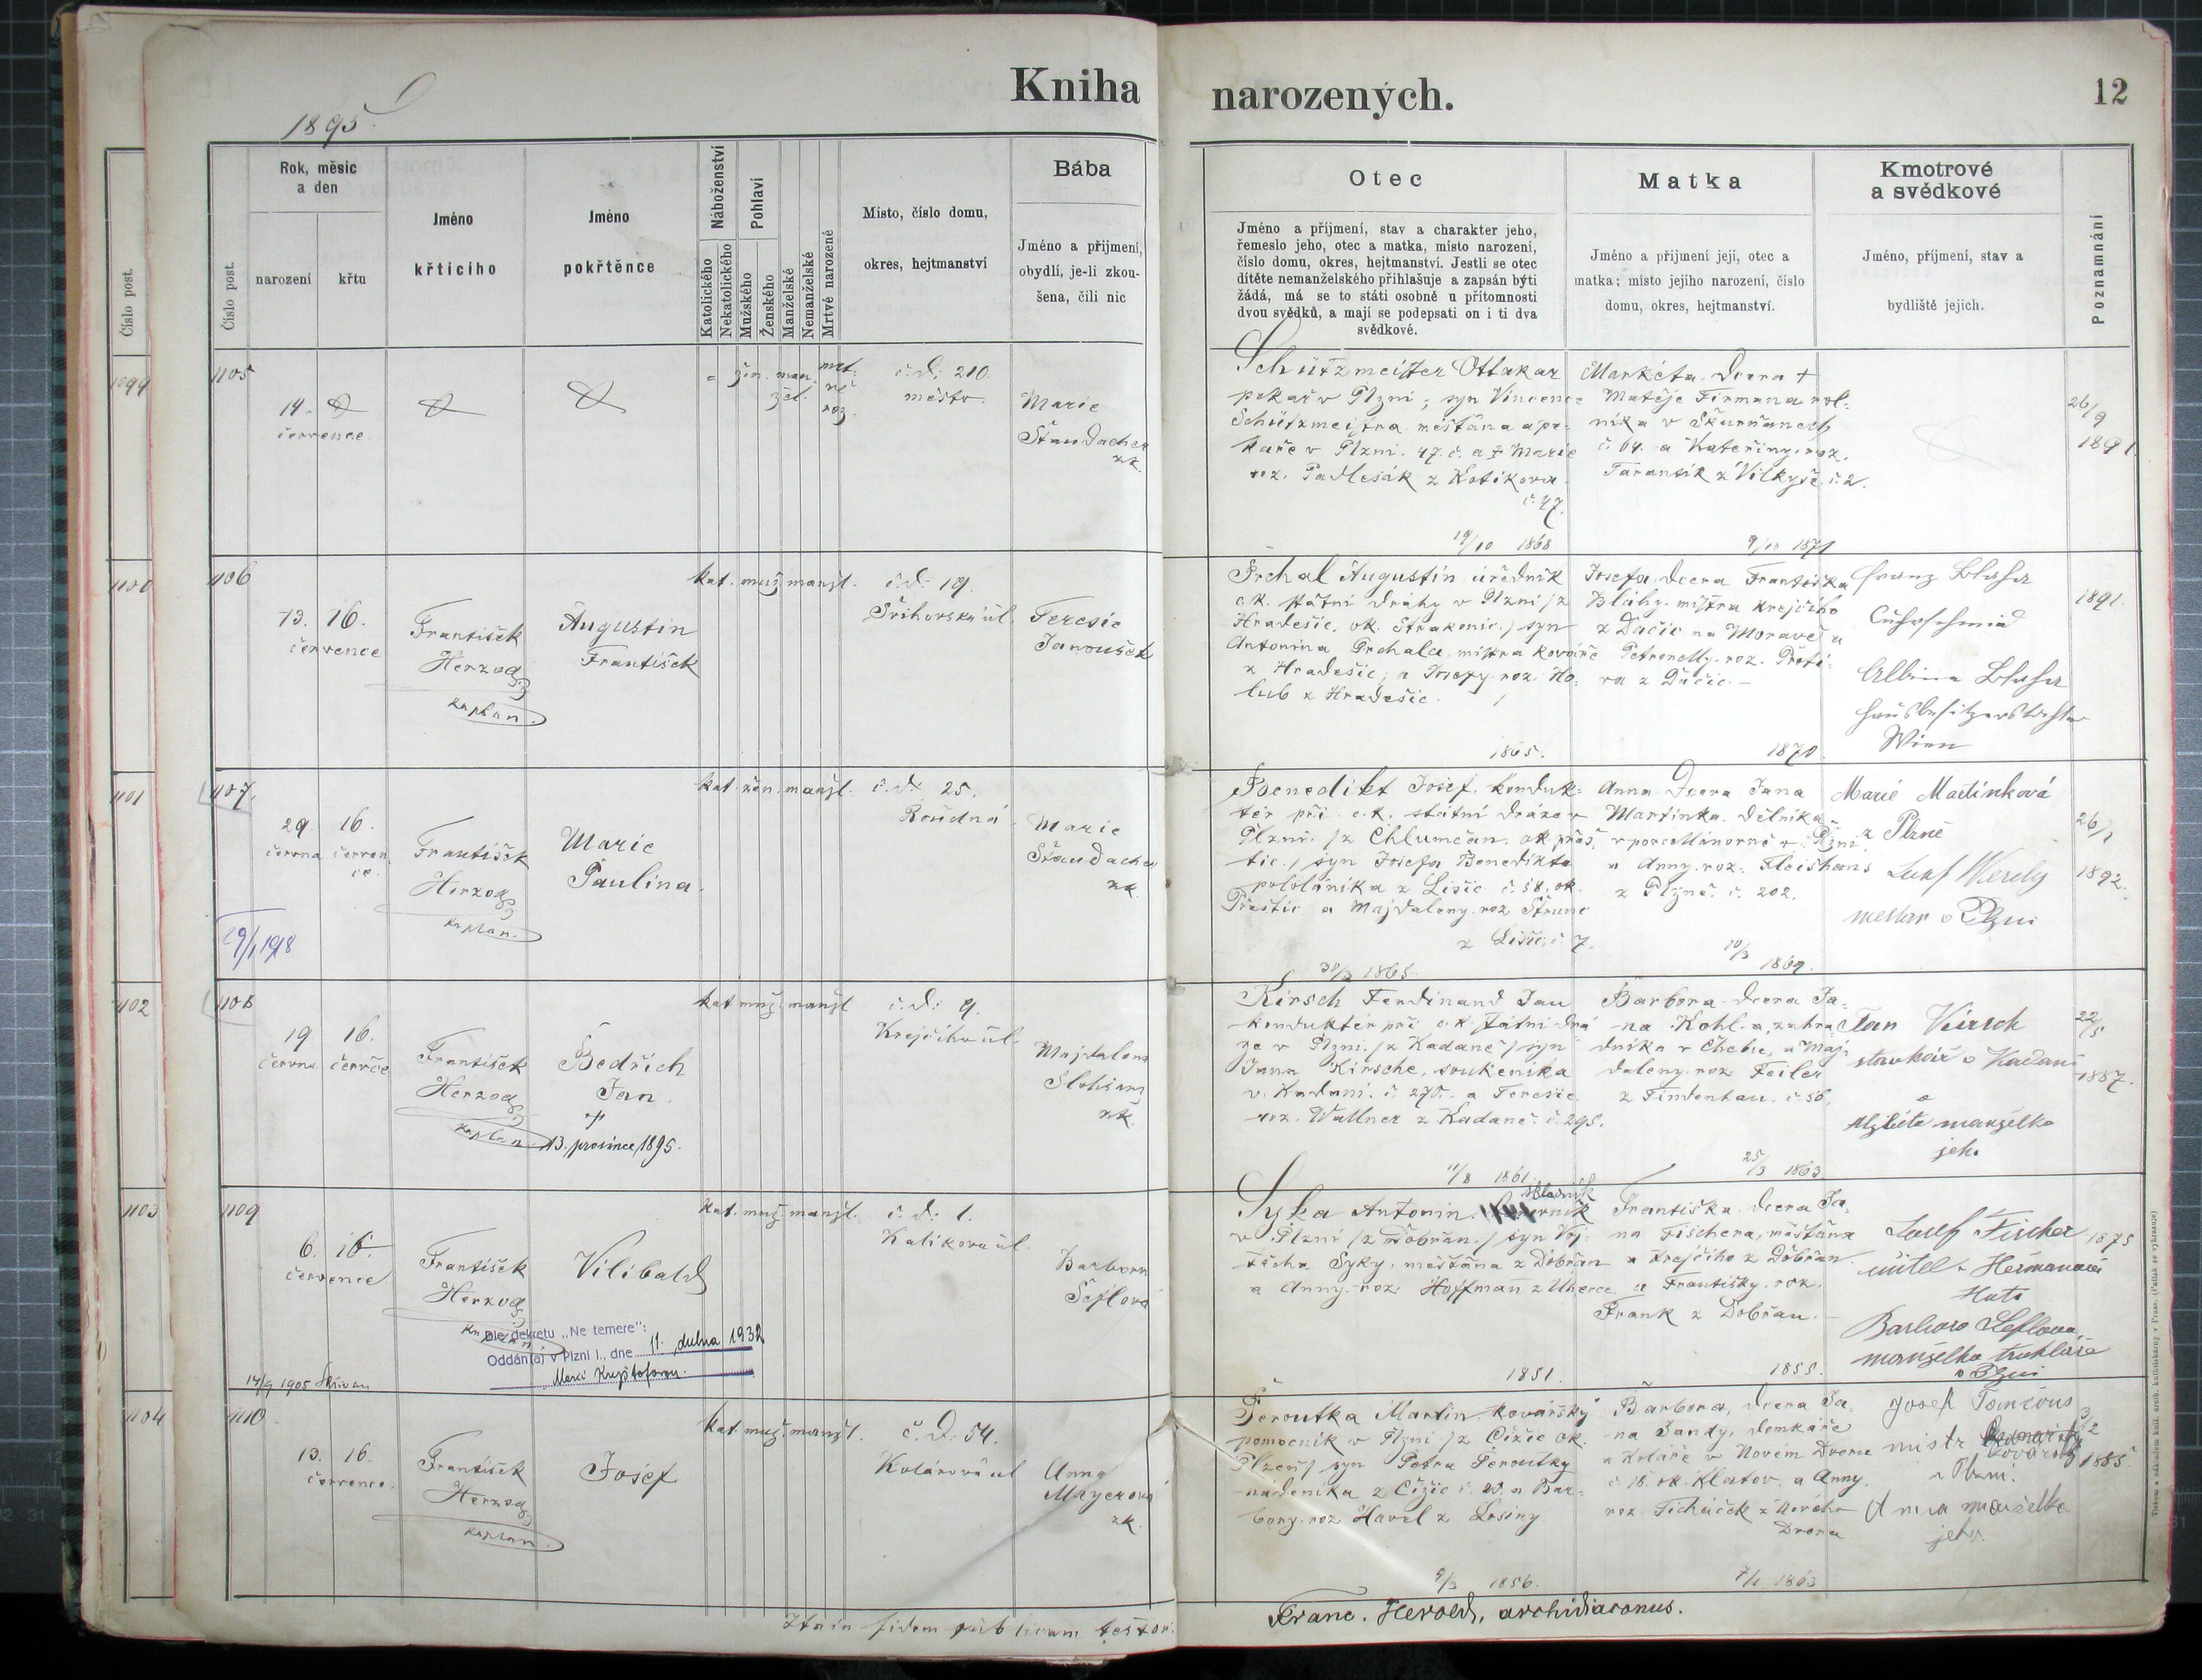 Kniha narozených.
12
1895
Číslo post.
1099
1100
1101
1102
1103
1104
Číslo post.
Rok, měsíc
a den
narození
křtu
Jméno
křtícího
Jméno
pokřtěnce
Náboženství
Katolického
Nekatolického
Pohlaví
Mužského
Ženského
Manželské
Nemanželské
Mrtvě narozené
Místo, číslo domu,
okres, hejtmanství
Bába
Jméno a příjmení,
obydlí, je-li zkou-
šena, čili nic
Otec
Jméno a příjmení, stav a charakter jeho,
řemeslo jeho, otec a matka, místo narození,
číslo domu, okres, hejtmanství. Jestli se otec
dítěte nemanželského přihlašuje a zapsán býti
žádá, má se to státi osobně u přítomnosti
dvou svědků, a mají se podepsati on i ti dva
svědkové.
Matka
Jméno a příjmení její, otec a
matka; místo jejího narození, číslo
domu, okres, hejtmanství.
Kmotrové
a svědkové
Jméno, příjmení, stav a
bydliště jejich.
Poznamnání
1105
14.
července
žen. man.
žel.
mrt.
vě
roz.
č. d. 210.
město.
Marie
Štaudacher
zk.
Schützmeister Ottakar
pekař v Plzni; syn Vincence
Schützmeistra měšťana a pe-
kaře v Plzni. 47. č. a † Marie
roz. Padlesák z Kotíkova
č. 47.
19/10 1868
Markéta dcera †
Matěje Firmana rol-
níka v Škurňanech
č. 64. a Kateřiny roz.
Tarantík z Vilkyše č. 2.
9/10 1871
26/9
1891
1106
13. 16.
července
František
Herzog
kaplan.
Augustin
František
kat. muž. manžl.
č. d. 19.
Terezie
Janoušek
Prchal Augustin úředník
c. k. státní dráhy v Plzni /z
Hradešic, ok. Strakonic,/ syn
Antonína Prchala, mistra kováře
z Hradešic, a Josefy roz. Ho-
lub z Hradešic.
1865.
Josefa dcera Františka
Bláhy mistra krejčího
z Dačic na Moravě a
Petronelly roz.
z Dačic.
1870.
Franz Blaha
Albina Blaha
Hausbesitzerstochter
Wien
1891.
1107
29. 16.
června červen-
ce.
František
Herzog
kaplan.
Marie
Paulina.
kat. žen. manžl.
č. d. 25.
Roudná
Marie
Štaudacher
zk.
29/1 1918
Benedikt Josef konduk-
tér při c. k. státní dráze v
Plzni. /z Chlumčan, ok. Přeš-
tic,/ syn Josefa Benedikta
pololáníka z Lišic č. 58. ok.
Přeštic a Majdaleny roz. Štrunc
z Lišic č. 7.
30/3 1865.
Anna Dcera Jana
Martínka dělníka
v porcelánorně v Plzni
a Anny roz. Fleishans
z Plzně č. 202.
10/3
1869.
Marie Martinková
z Plzně
Josef Weselý
mešťan v Plzni
26/1
1892.
1108
19. 16.
června červce
František
Herzog
kaplan.
Bedřich
Jan
13. prosince 1895.
kat. muž. manžl
č. d. 9.
Krejčího ul.
Majdalena
zk.
Kirsch Ferdinand Jan
konduktér při c. k. státní drá-
ze v Plzni. /z Kadaně/ syn
Jana Kirsche, soukeníka
v Kadani č. 275. a Terezie
roz. Wallner z Kadaně č. 295.
11/8 1861
Barbora dcera Ja-
na Kohl-a, zahra-
dníka v Chebu, a Maj-
daleny roz. Feiler
č. 56.
25/3 1863
Jan Kirsch
v Kadani
a
Alžběta manželka
jeho
22/5
1887.
1109
6. 16.
července
František
Herzog
kaplan
Vilibald
kat. muž. manžl.
č. d. 1.
Kalikova ul.
Barbora
Šeflová
Dle dekretu „Ne temere":
Oddán(a) v Plzni I., dne 11. dubna 1932
17/9 1905
Syka Antonín
v Plzni /z Dobřan./ syn Voj-
těcha Syky, měšťana z Dobřan
a Anny roz. Hoffmann z Uherce
1851.
Františka dcera Ja-
na Fischera, měšťana
a krejčího z Dobřan
a Františky roz.
Frank z Dobřan.
1855.
Josef Fischer
učitel v Heřmanově
Huti
Barbora Šeflová
manželka truhláře
v Plzni
1875
1110
13. 16.
července.
František
Herzog
kaplan.
Josef
kat. muž. manžl.
č. d. 54.
Kolárova ul
Anna
Mayerová
zk.
Peroutka Martin, kovářský
pomocník v Plzni /z Čížic ok.
Plzeň/ syn Petra Peroutky
nádeníka z Čížic č. 20. a Bar-
bory roz. Havel z Losiny.
9/3 1856.
Barbora, dcera Ja-
na Jandy, domkáře
a koláře v Novém Dvoru
č. 18. ok. Klatov. a Anny
roz. Ticháček z Nového
Dvora
7/1 1863
Josef
mistr kovářský
v Plzni.
Anna manželka
jeho.
3/2
1885
Ita in fidem publicam testor:
Franc. Herold, archidiaconus.